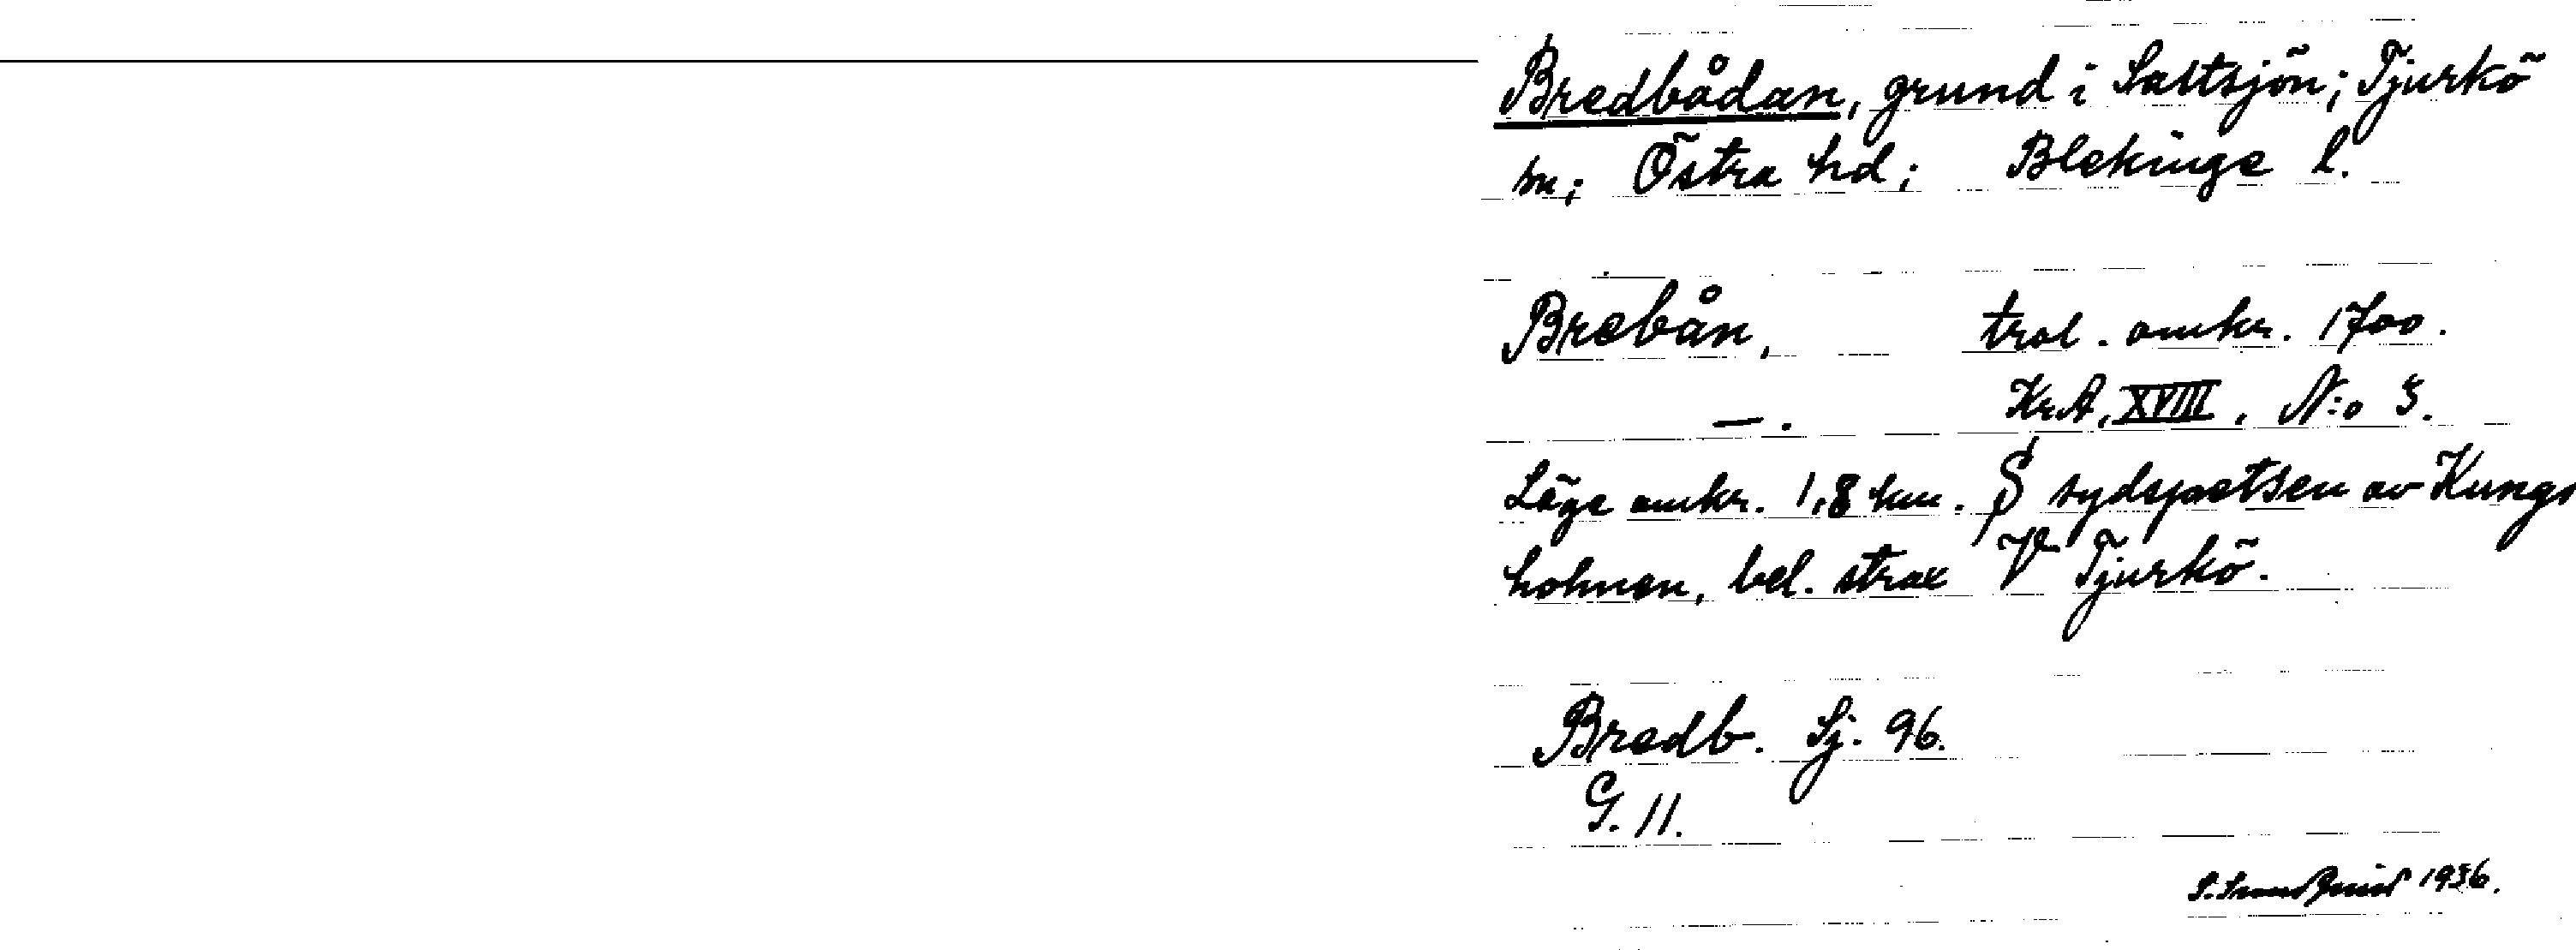 Bredbådan, grund i Saltsjön; Tjurkö
sn; Östra hd; Blekinge l.
Brebån, trol. omkr. 1700.
—. KrA, XVIII, N:o 3.
Läge omkr. 1,8 km. S sydspetsen av Kungs
holmen, bel. strax V Tjurkö.
Bredb. Sj. 96.
G. 11.
1936.